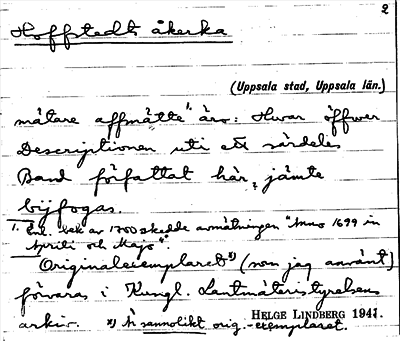 2
Hoffstedts åkerka
(Uppsala stad, Uppsala län.)
mätare affmätte¹· äro: Hwar öffwer
Descriptionen uti ett särdeles
Band författat här jämte
bijfogas.
1. Enl. bek av 1700 skedde avmätningen "Anno 1699 in
Aprili och Majo".
Originalexemplaret x) (som jag använt)
förvaras i Kungl. Lantmäteristyrelsens
arkiv. x) Är sannolikt orig.-exemplaret.
HELGE LINDBERG 1941.